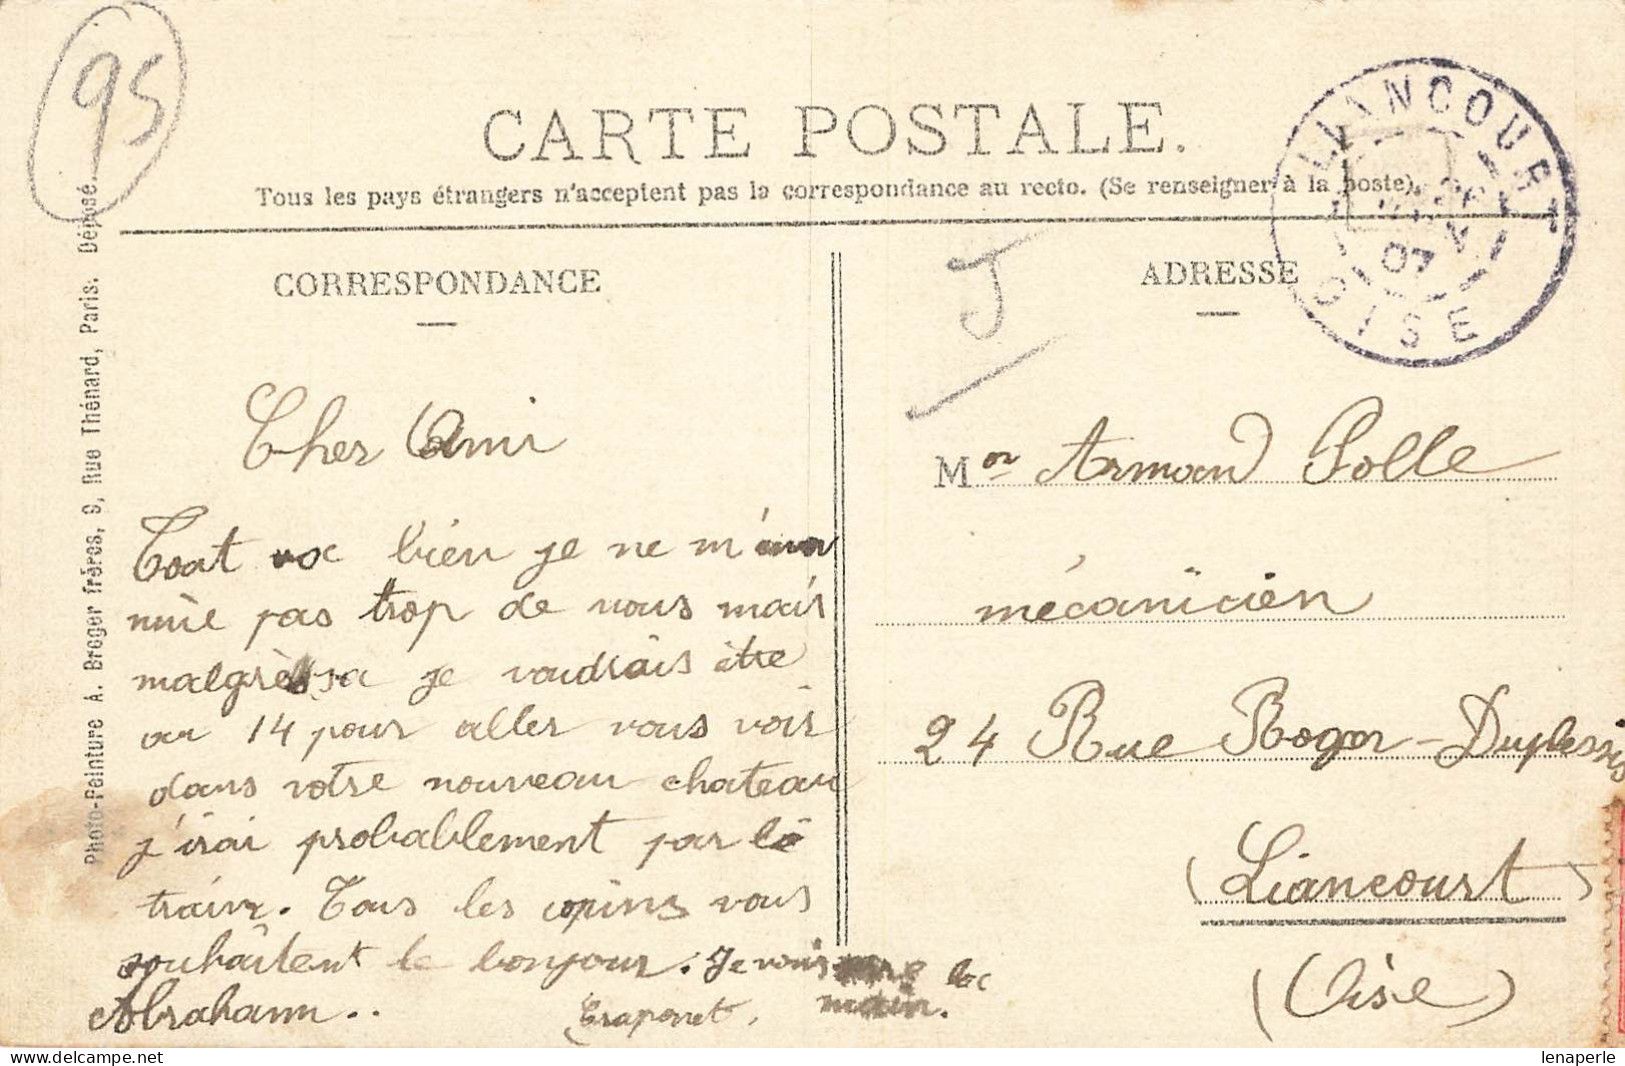 95
CARTE POSTALE.
Tous les pays étrangers n'acceptent pas la correspondance au recto. (Se renseigner à la poste).
LIANCOURT
07
OISE
Photo-Peinture A. Breger frères, 9, Rue Thénard, Paris. Déposé.
CORRESPONDANCE
Cher Ami
Tout va bien je ne m'en
nuie pas trop de vous mais
malgrès sa je voudrais être
au 14 pour aller vous voir
dans votre nouveau chateau
j'irai probablement par le
train. Tous les copins vous
souhaitent le bonjour. Je vous serre la
main.
Abraham..
J
ADRESSE
Mor Armand Polle
mécanicien
24 Rue Roger-Duplessis
(Liancourt)
(Oise)
lenaperle